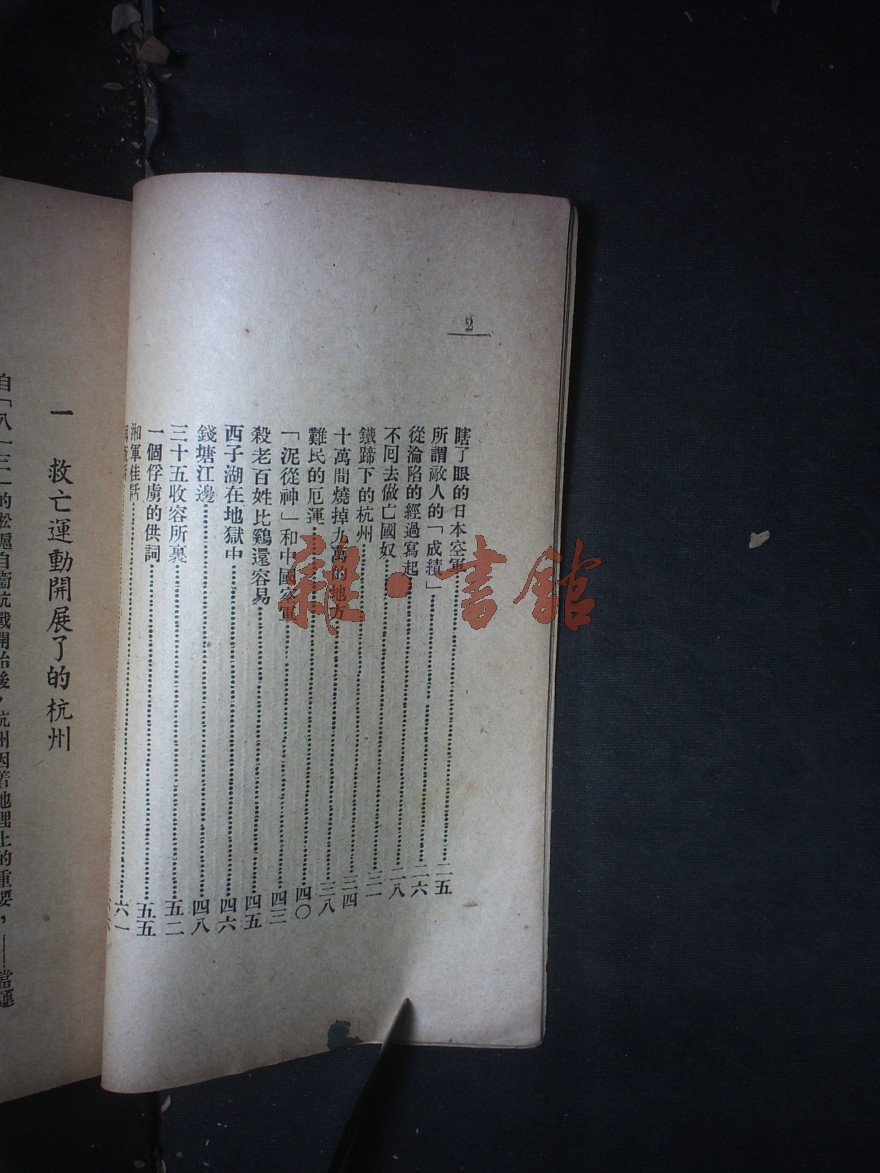 2
瞎了眼的日本空軍……二五
所謂敵人的「成績」……二六
從淪陷的經過寫起……二八
不囘去做亡國奴……三一
鐵蹄下的杭州……三四
十萬間燒掉九萬的地方……三八
難民的厄運……四〇
「泥從神」和中國空軍……四三
殺老百姓比鷄還容易……四五
西子湖在地獄中……四六
錢塘江邊……四八
三十五收容所裏……五二
一個俘虜的供詞……五五
湘軍佳話……六一
一 救亡運動開展了的杭州
自「八一三」的松滬自衞抗戰開始後，杭州因着地理上的重要，——當
雜·書館